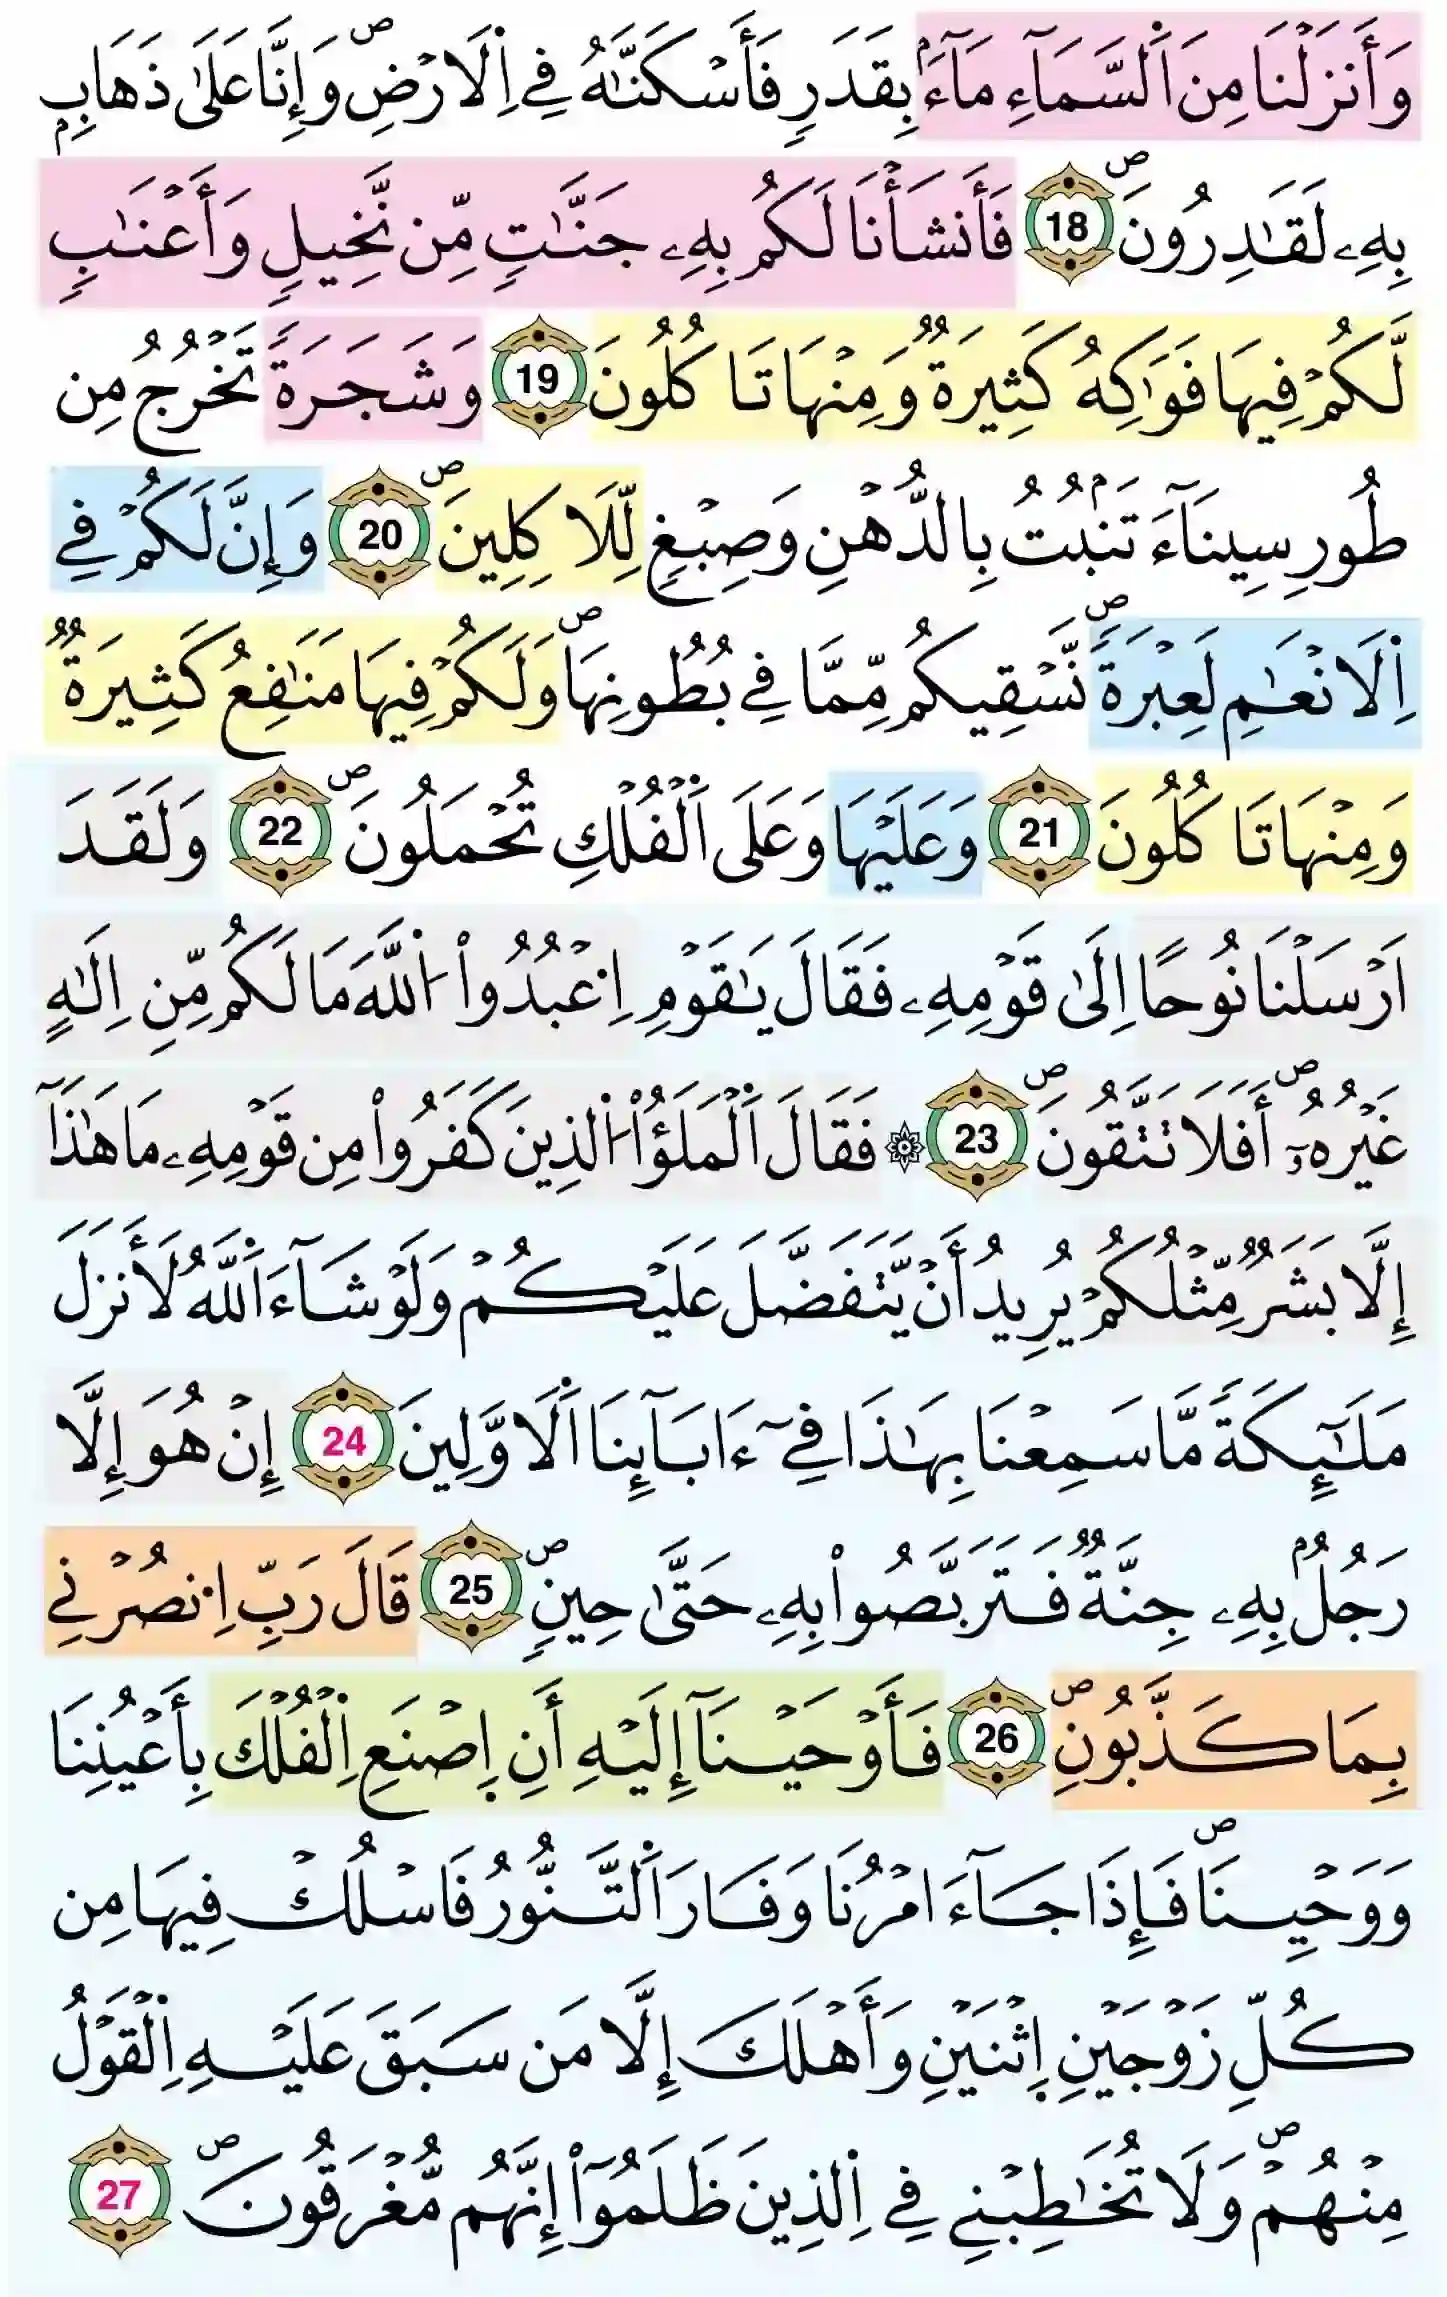 وَأَنزَلْنَا مِنَ اَ۬لسَّمَآءِ مَآءَۢ بِقَدَرٖ فَأَسْكَنَّٰهُ فِے اِ۬لَارْضِۖ وَإِنَّا عَلَىٰ ذَهَابِۢ
بِهِۦ لَقَٰدِرُونَۖ 18 فَأَنشَأْنَا لَكُم بِهِۦ جَنَّٰتٖ مِّن نَّخِيلٖ وَأَعْنَٰبٖ
لَّكُمْ فِيهَا فَوَٰكِهُ كَثِيرَةٞ وَمِنْهَا تَاكُلُونَ 19 وَشَجَرَةٗ تَخْرُجُ مِن
طُورِ سِينَآءَ تَنۢبُتُ بِالدُّهْنِ وَصِبْغٖ لِّلَاكِلِينَۖ 20 وَإِنَّ لَكُمْ فِے
اِ۬لَانْعَٰمِ لَعِبْرَةٗۖ نَّسْقِيكُم مِّمَّا فِے بُطُونِهَاۖ وَلَكُمْ فِيهَا مَنَٰفِعُ كَثِيرَةٞ
وَمِنْهَا تَاكُلُونَ 21 وَعَلَيْهَا وَعَلَى اَ۬لْفُلْكِ تُحْمَلُونَۖ 22 وَلَقَدَ
اَرْسَلْنَا نُوحًا اِلَىٰ قَوْمِهِۦ فَقَالَ يَٰقَوْمِ اِ۟عْبُدُوا۟ اُ۬للَّهَ مَا لَكُم مِّنِ اِلَٰهٍ
غَيْرُهُۥٓۖ أَفَلَا تَتَّقُونَۖ 23 ۞ فَقَالَ اَ۬لْمَلَؤُا۟ اُ۬لذِينَ كَفَرُوا۟ مِن قَوْمِهِۦ مَا هَٰذَآ
إِلَّا بَشَرٞ مِّثْلُكُمْ يُرِيدُ أَنْ يَّتَفَضَّلَ عَلَيْكُمْ وَلَوْ شَآءَ اَ۬للَّهُ لَأَنزَلَ
مَلَٰٓئِكَةٗ مَّا سَمِعْنَا بِهَٰذَا فِےٓ ءَابَآئِنَا اَ۬لَاوَّلِينَ 24 إِنْ هُوَ إِلَّا
رَجُلُۢ بِهِۦ جِنَّةٞ فَتَرَبَّصُوا۟ بِهِۦ حَتَّىٰ حِينٖۖ 25 قَالَ رَبِّ اِ۟نصُرْنِے
بِمَا كَذَّبُونِۖ 26 فَأَوْحَيْنَآ إِلَيْهِ أَنِ اِ۪صْنَعِ اِ۬لْفُلْكَ بِأَعْيُنِنَا
وَوَحْيِنَاۖ فَإِذَا جَآءَ امْرُنَا وَفَارَ اَ۬لتَّنُّورُ فَاسْلُكْ فِيهَا مِن
كُلِّ زَوْجَيْنِ اِ۪ثْنَيْنِ وَأَهْلَكَ إِلَّا مَن سَبَقَ عَلَيْهِ اِ۬لْقَوْلُ
مِنْهُمْۖ وَلَا تُخَٰطِبْنِے فِے اِ۬لذِينَ ظَلَمُوٓا۟ إِنَّهُم مُّغْرَقُونَۖ 27